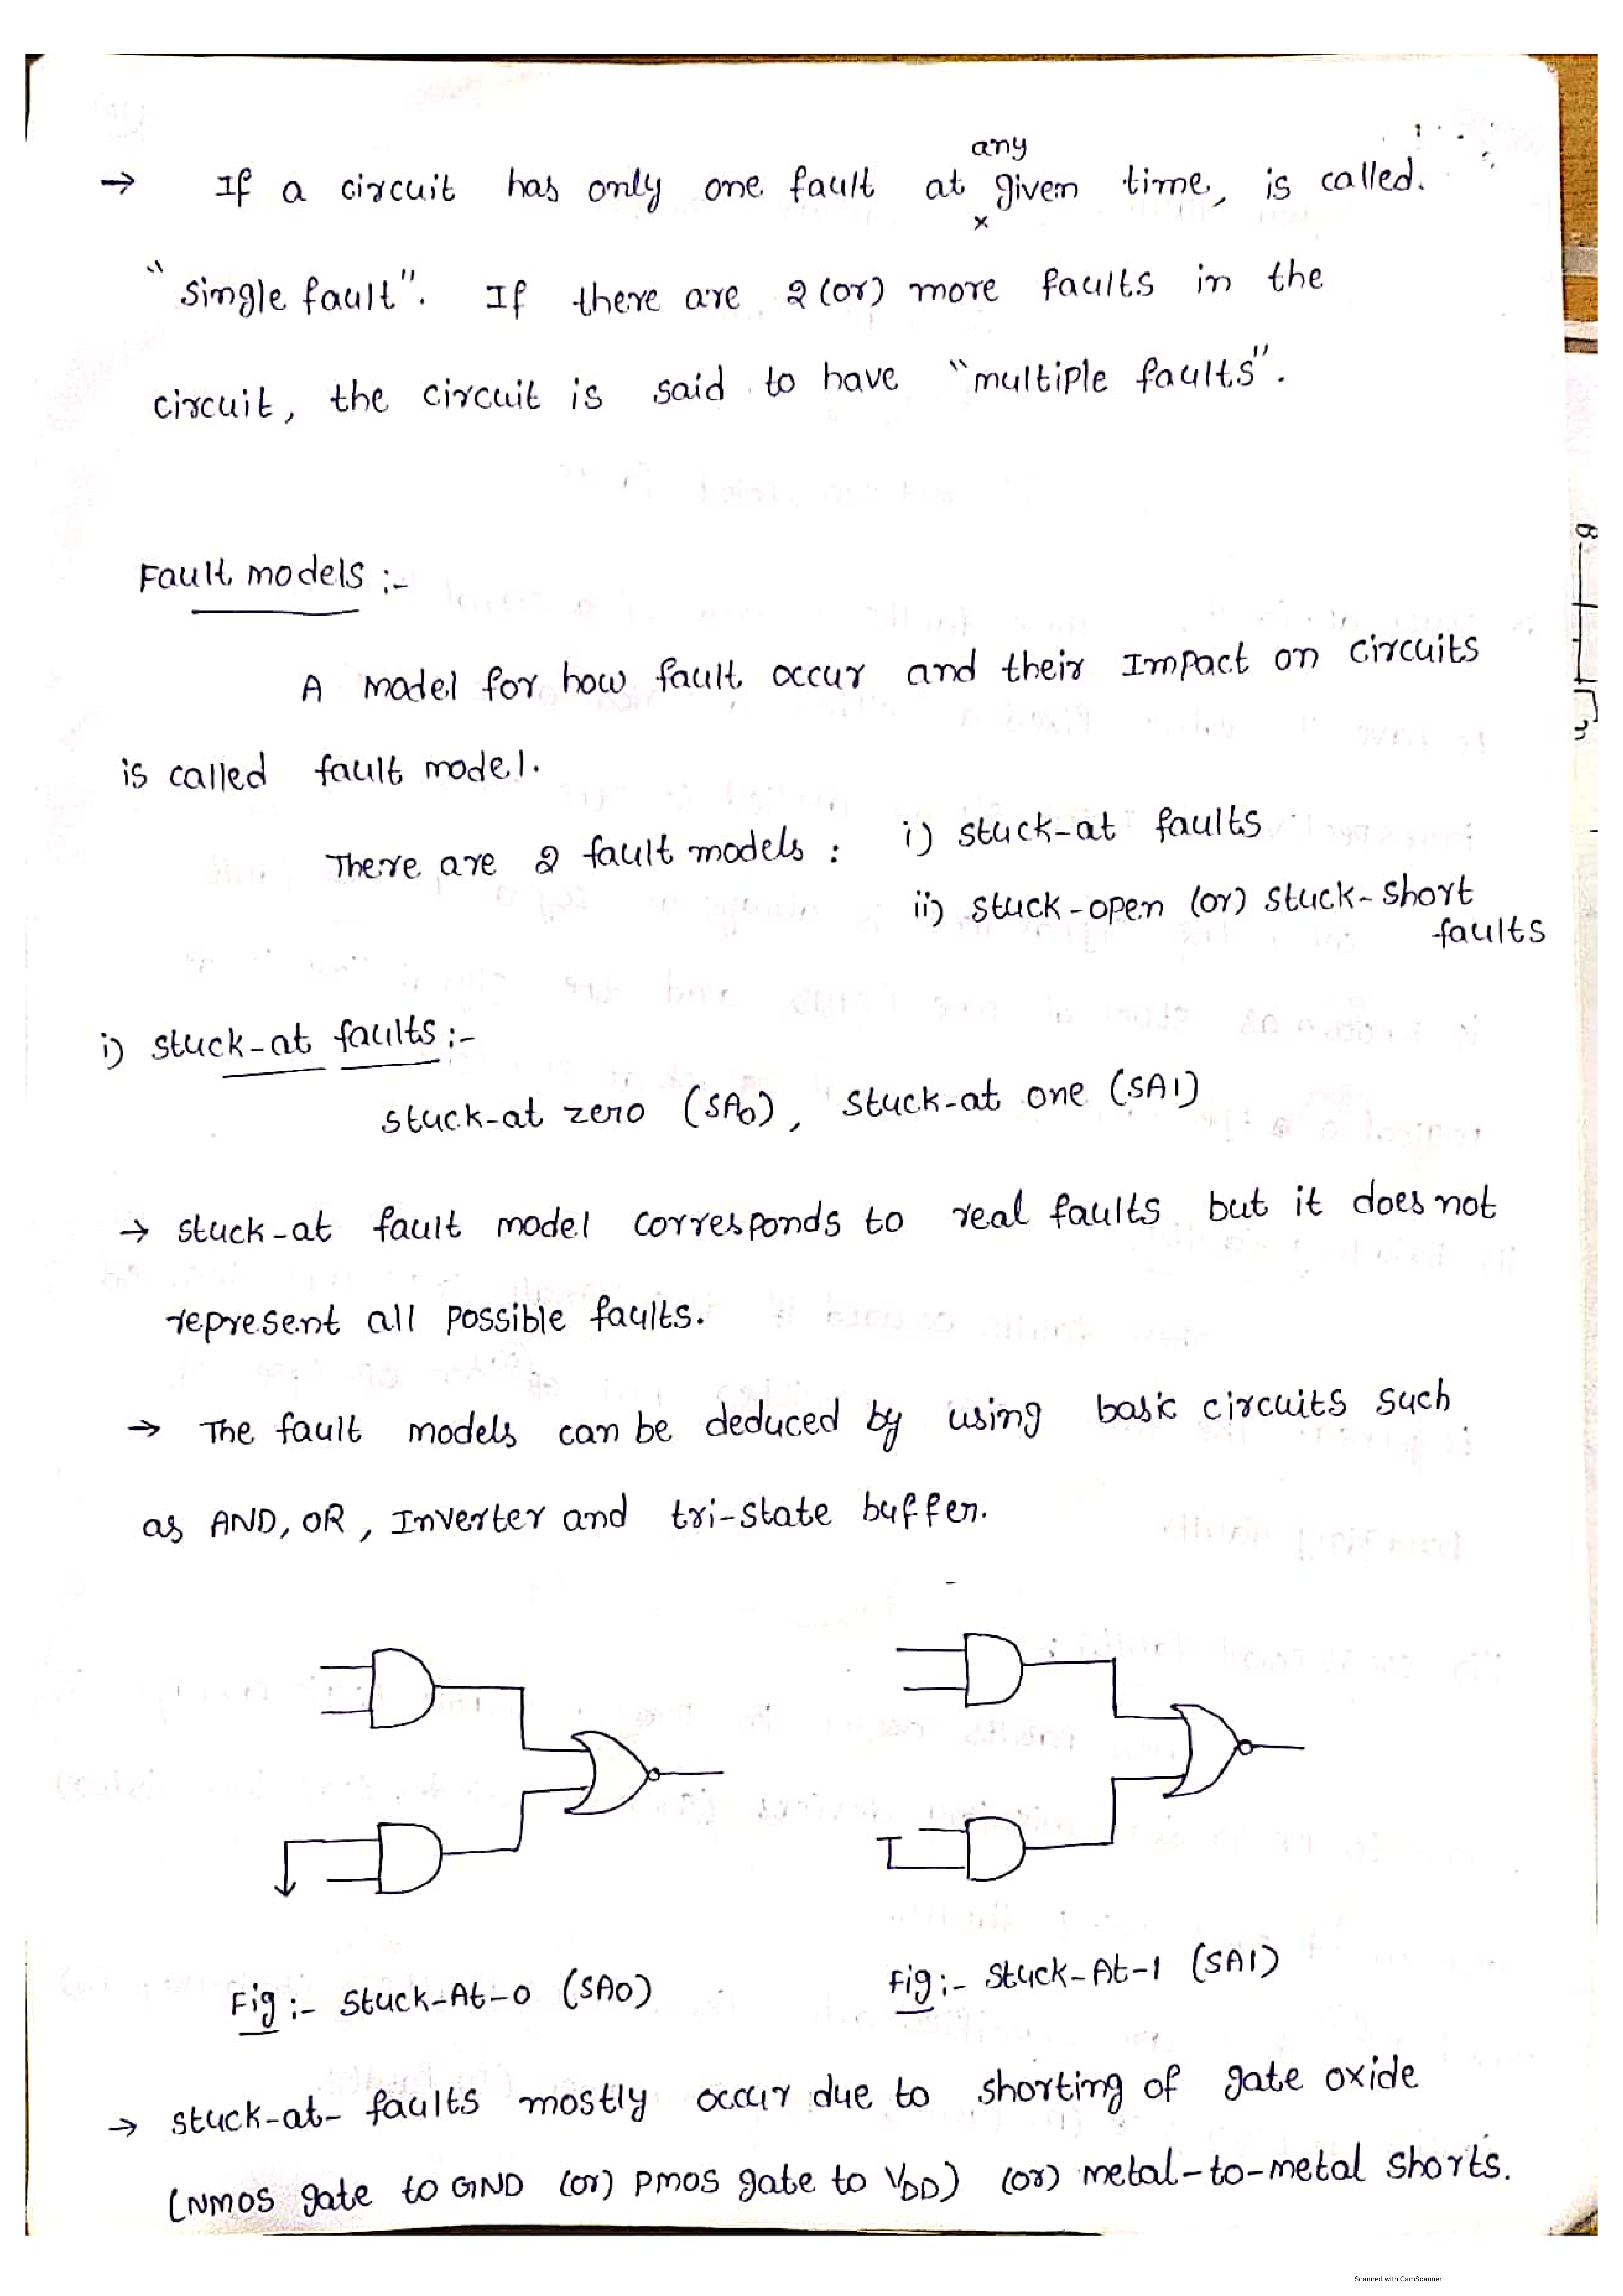 any
→ If a circuit has only one fault at given time, is called.
x
"single fault". If there are 2 (or) more faults in the
circuit, the circuit is said to have "multiple faults".
Fault models :-
A model for how fault occur and their Impact on circuits
is called fault model.
There are 2 fault models : i) stuck-at faults
ii) stuck-open (or) stuck-short
faults
i) stuck-at faults :-
stuck-at zero (SA0), stuck-at one (SA1)
→ stuck-at fault model corresponds to real faults but it does not
represent all possible faults.
→ The fault models can be deduced by using basic circuits such
as AND, OR, Inverter and tri-state buffer.
Fig :- Stuck-At-0 (SA0)
Fig :- Stuck-At-1 (SA1)
→ stuck-at- faults mostly occur due to shorting of gate oxide
(NMOS gate to GND (or) PMOS gate to VDD) (or) metal-to-metal shorts.
Scanned with CamScanner